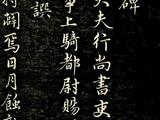 碑
大夫行尚書吏
事上騎都尉賜
譔
闕焉日月蝕